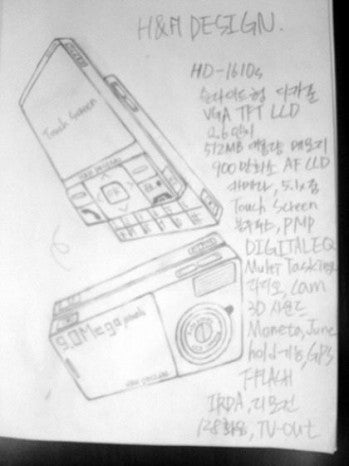 H&H DESIGN.
HD-1610s
슬라이드형 디카폰
VGA TFT LCD
2.6인치
512MB 대용량 메모리
900만화소 AF LCD
카메라, 5.1x줌
Touch Screen
PMP
DIGITAL EQ
Multi Tasking
라디오, Cam
3D 사운드
Moneta, June
hold기능, GPS
T-FLASH
IRDA, 리모컨
128화음, TV-out
Touch Screen
H&H DESIGN
OK
9.0Mega pixels
H&H DESIGN